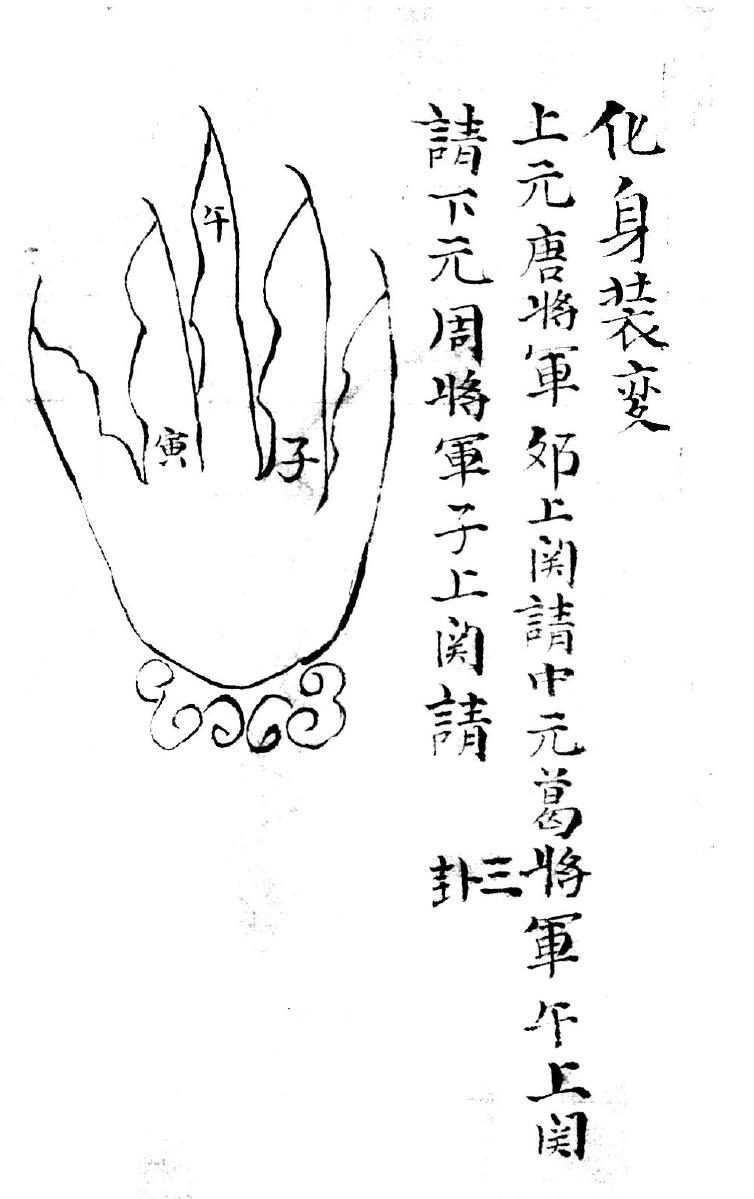 化身装変
上元唐將軍夘上関請中元葛將軍午上関
請下元周將軍子上関請
三卦
午
寅
子